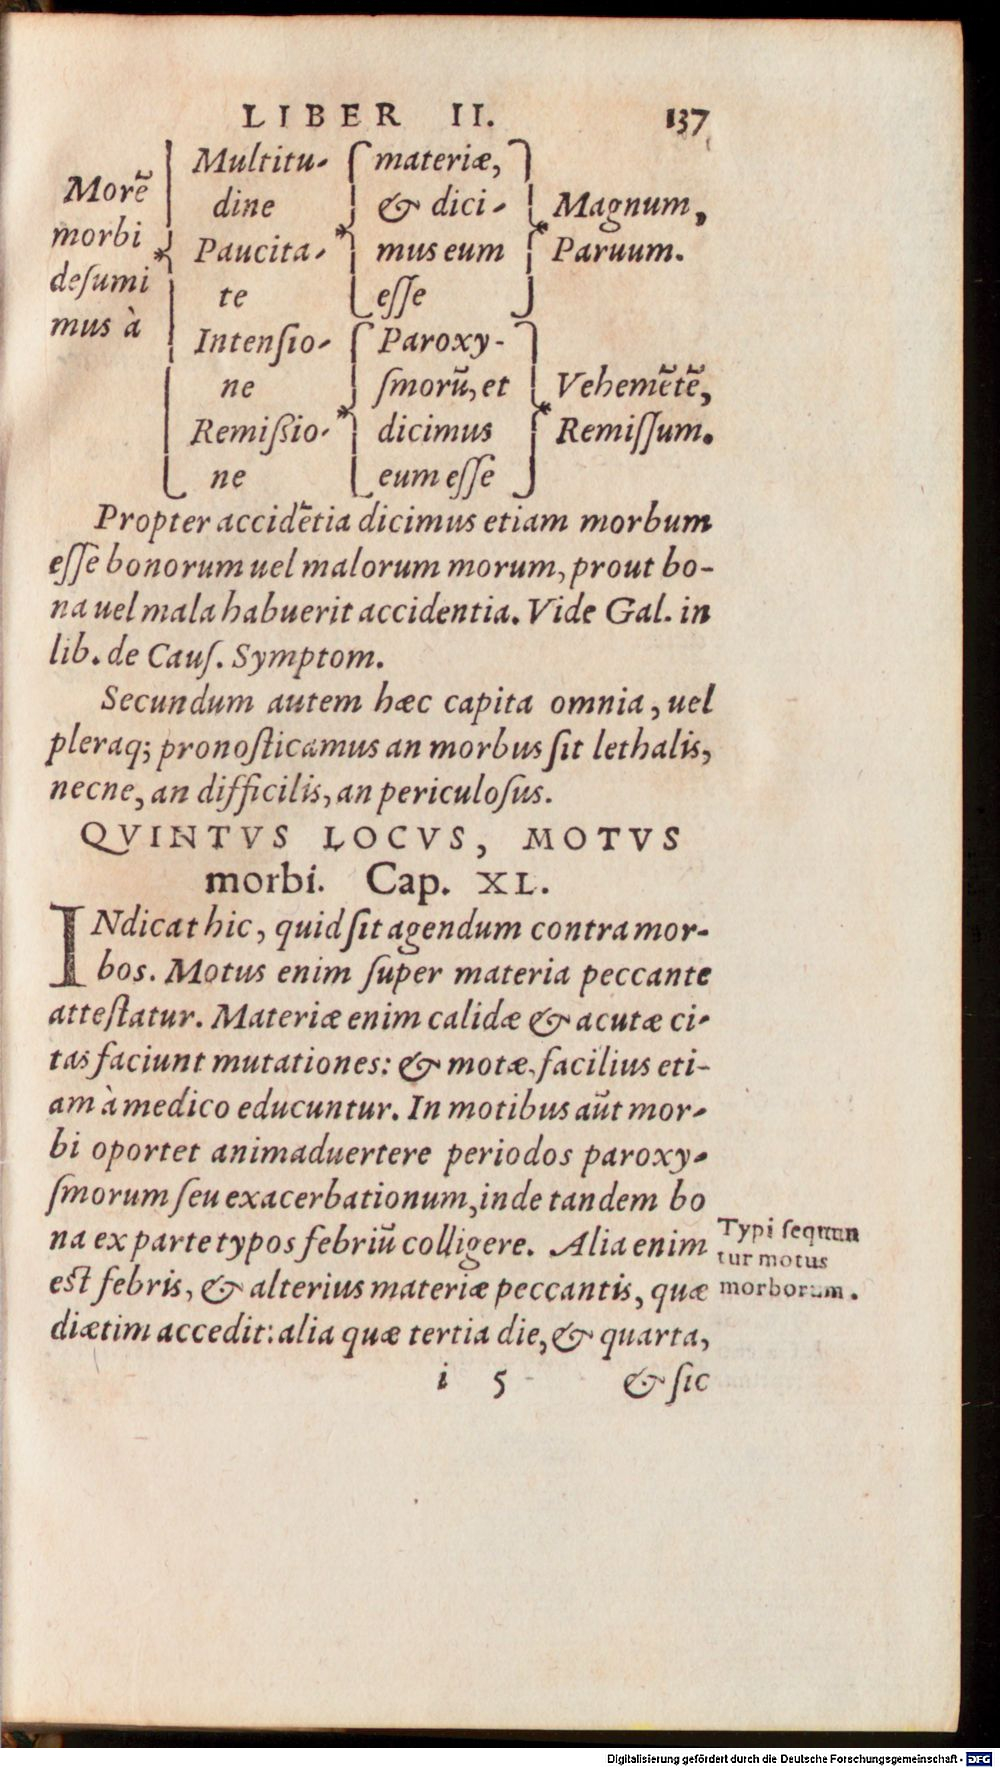 LIBER II. 137
Morē
morbi
deſumi
mus à
Multitu-
dine
Paucita-
te
Intenſio-
ne
Remiſsio-
ne
materiæ,
& dici-
mus eum
eſſe
Magnum,
Paruum.
Paroxy-
ſmorū, et
dicimus
eum eſſe
Vehemētē,
Remiſſum.
Propter accidētia dicimus etiam morbum
eſſe bonorum uel malorum morum, prout bo-
na uel mala habuerit accidentia. Vide Gal. in
lib. de Cauſ. Symptom.
Secundum autem hæc capita omnia, uel
pleraq; pronoſticamus an morbus ſit lethalis,
necne, an difficilis, an periculoſus.
QVINTVS LOCVS, MOTVS
morbi. Cap. XL.
INdicat hic, quid ſit agendum contra mor-
bos. Motus enim ſuper materia peccante
atteſtatur. Materiæ enim calidæ & acutæ ci-
tas faciunt mutationes: & motæ, facilius eti-
am à medico educuntur. In motibus aūt mor-
bi oportet animaduertere periodos paroxy-
ſmorum ſeu exacerbationum, inde tandem bo
na ex parte typos febriū colligere. Alia enim
eſt febris, & alterius materiæ peccantis, quæ
diætim accedit: alia quæ tertia die, & quarta,
Typi ſequun
tur motus
morborum.
i 5 & ſic
Digitalisierung gefördert durch die Deutsche Forschungsgemeinschaft - DFG